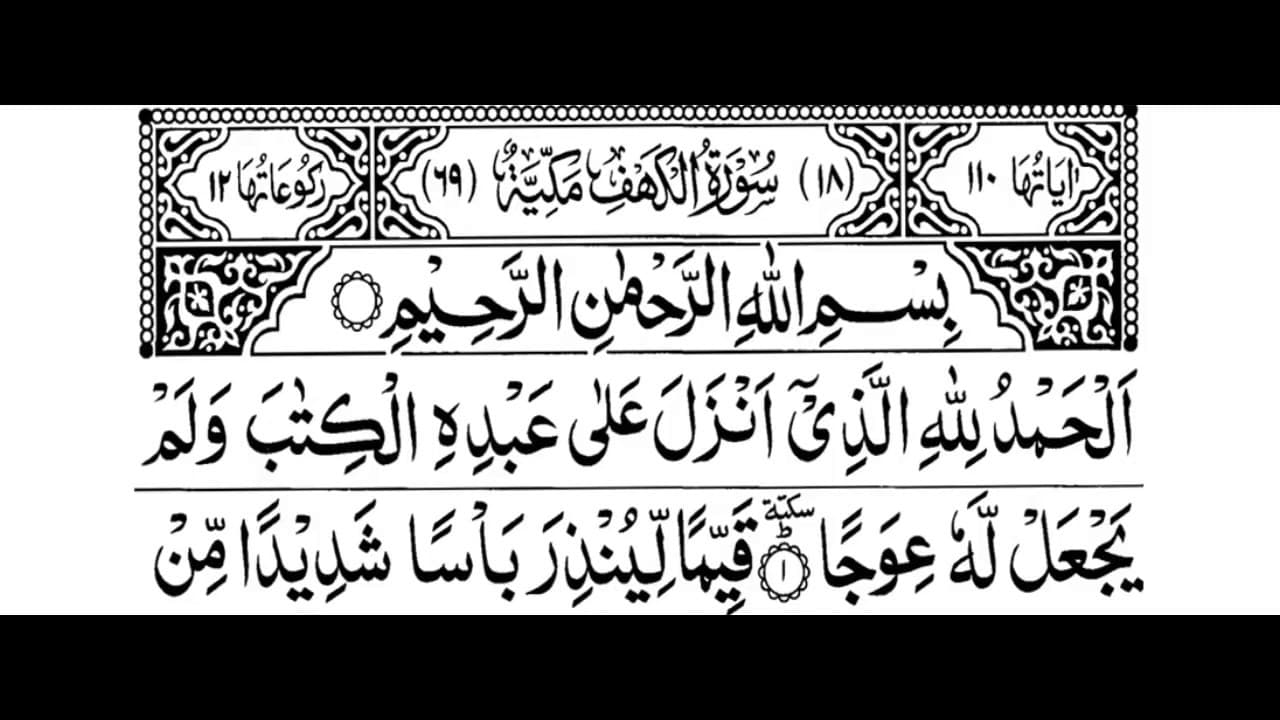 اٰيَاتُهَا ١١٠ (١٨) سُوْرَةُ الْكَهْفِ مَكِّيَّةٌ (٦٩) رُكُوْعَاتُهَا ١٢
بِسْمِ اللّٰهِ الرَّحْمٰنِ الرَّحِيْمِ
اَلْحَمْدُ لِلّٰهِ الَّذِيْۤ اَنْزَلَ عَلٰى عَبْدِهِ الْكِتٰبَ وَلَمْ
يَجْعَلْ لَّهٗ عِوَجًا سكتة ط ١ قَيِّمًا لِّيُنْذِرَ بَاْسًا شَدِيْدًا مِّنْ